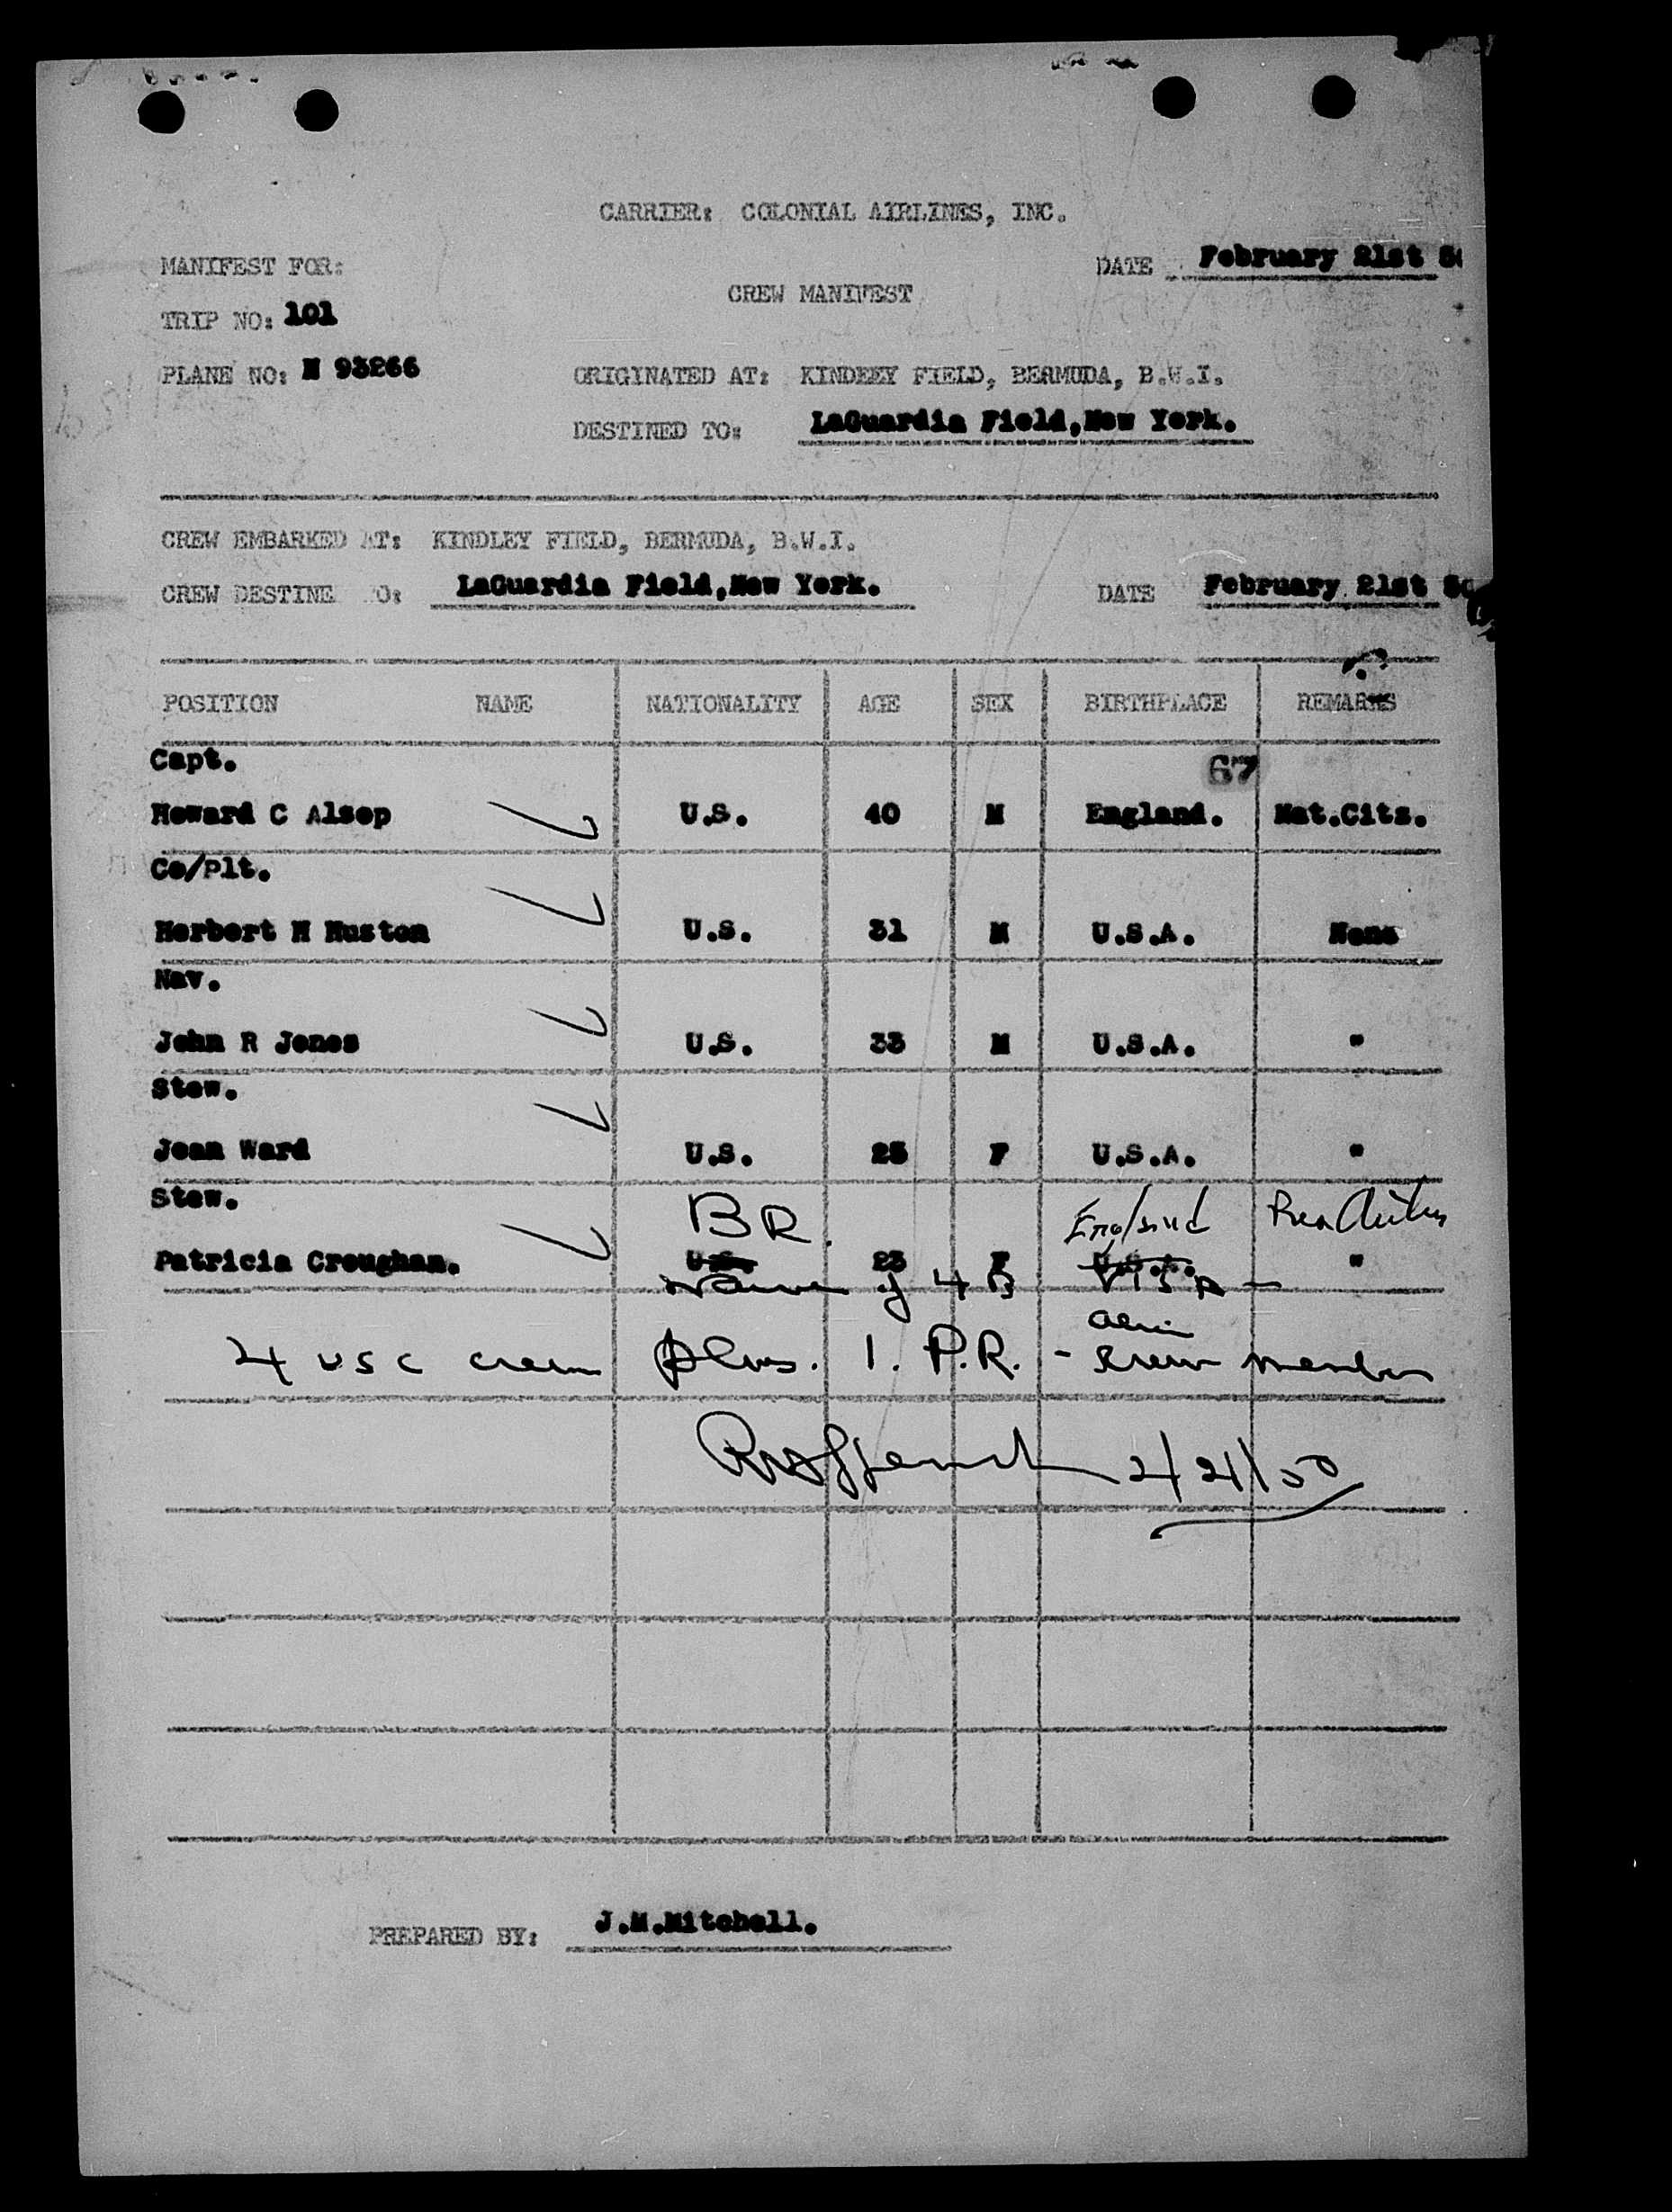 CARRIER: COLONIAL AIRLINES, INC.
MANIFEST FOR: DATE February 21st 50
CREW MANIFEST
TRIP NO: 101
PLANE NO: N 93266 ORIGINATED AT: KINDLEY FIELD, BERMUDA, B.W.I.
DESTINED TO: LaGuardia Field,New York.
CREW EMBARKED AT: KINDLEY FIELD, BERMUDA, B.W.I.
CREW DESTINE O: LaGuardia Field,New York. DATE February 21st 50
POSITION NAME NATIONALITY AGE SEX BIRTHPLACE REMARKS
Capt. 67
Howard C Alsop U.S. 40 M England. Nat.Citz.
Co/Plt.
Herbert H Huston U.S. 31 M U.S.A. None
Nav.
John R Jones U.S. 33 M U.S.A. "
Stew.
Jean Ward U.S. 25 F U.S.A. "
Stew. BR. England
Patricia Croughan. U.S. 23 F U.S.A. "
4 B VISA -
4 USC crew plus. 1. P.R. - alien crew member
2/21/50
PREPARED BY: J.M.Mitchell.